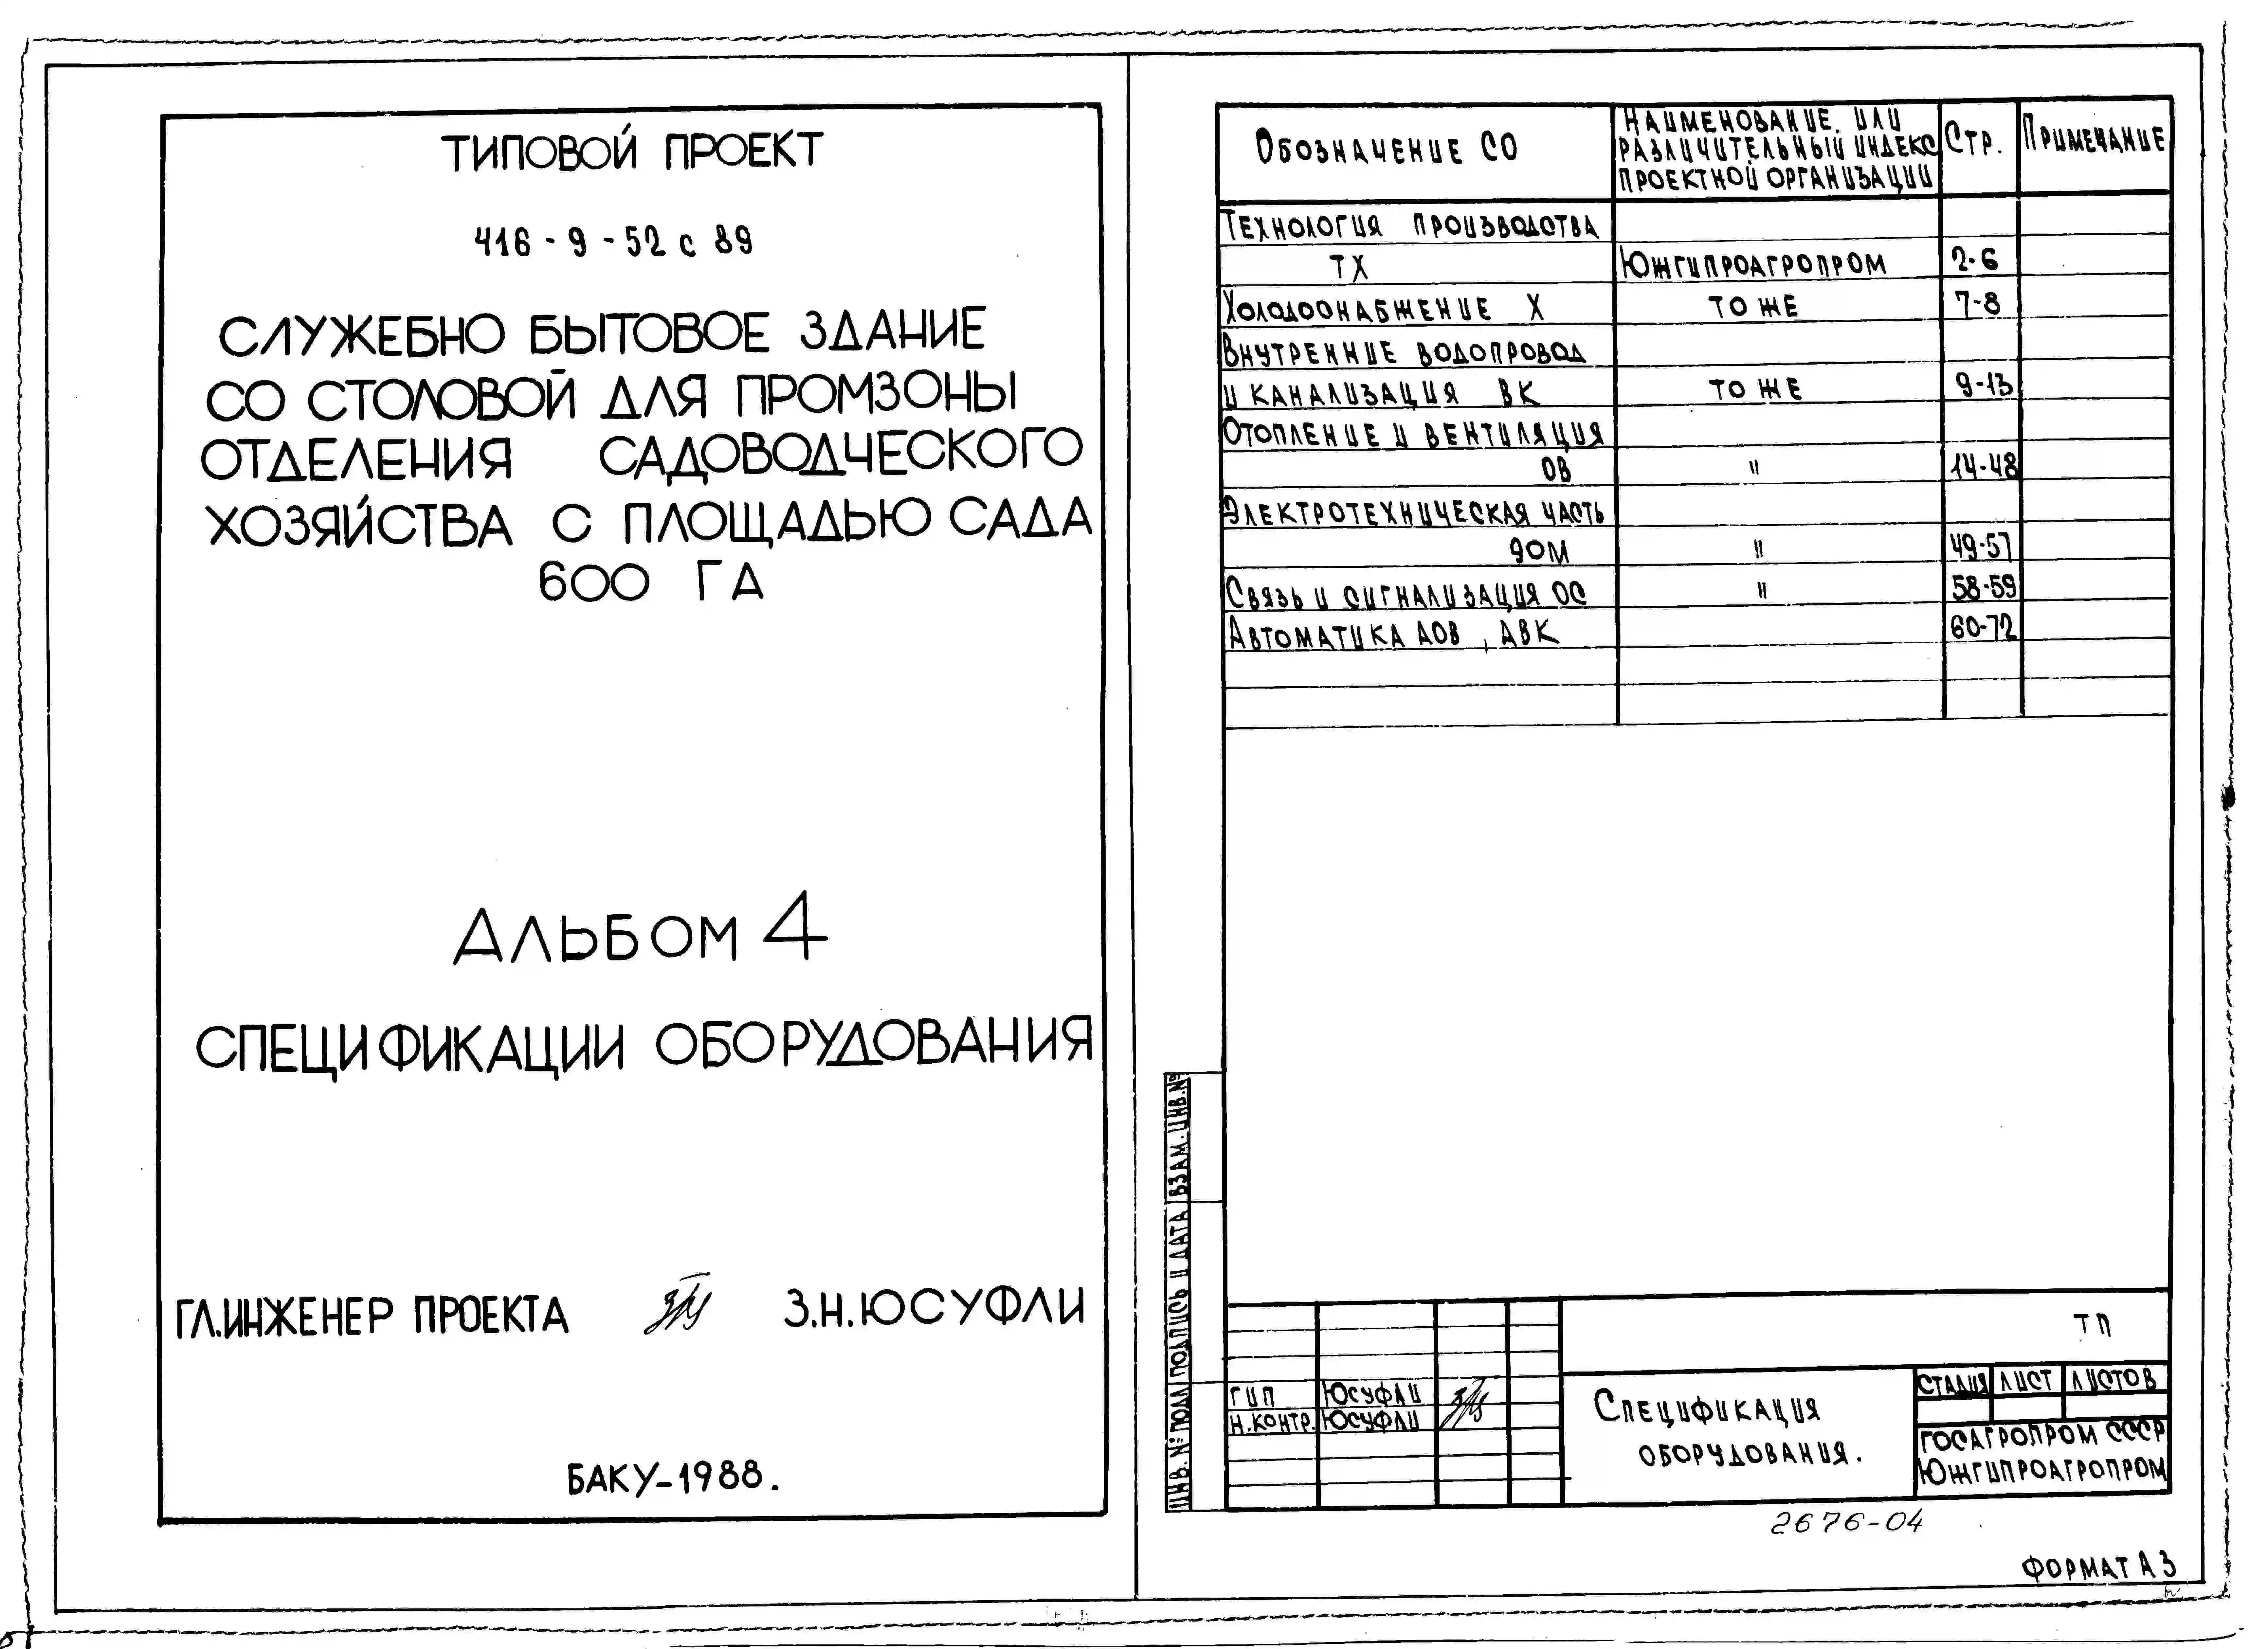 ТИПОВОЙ ПРОЕКТ
416-9-52 с 89
СЛУЖЕБНО БЫТОВОЕ ЗДАНИЕ
СО СТОЛОВОЙ ДЛЯ ПРОМЗОНЫ
ОТДЕЛЕНИЯ САДОВОДЧЕСКОГО
ХОЗЯЙСТВА С ПЛОЩАДЬЮ САДА
600 ГА
АЛЬБОМ 4
СПЕЦИФИКАЦИИ ОБОРУДОВАНИЯ
ГЛ.ИНЖЕНЕР ПРОЕКТА З.Н.ЮСУФЛИ
БАКУ-1988.
ОБОЗНАЧЕНИЕ СО
НАИМЕНОВАНИЕ. ИЛИ
РАЗЛИЧИТЕЛЬНЫЙ ИНДЕКС
ПРОЕКТНОЙ ОРГАНИЗАЦИИ
СТР.
ПРИМЕЧАНИЕ
ТЕХНОЛОГИЯ ПРОИЗВОДСТВА
ТХ ЮЖГИПРОАГРОПРОМ 2-6
ХОЛОДОСНАБЖЕНИЕ Х ТО ЖЕ 7-8
ВНУТРЕННИЕ ВОДОПРОВОД
И КАНАЛИЗАЦИЯ ВК ТО ЖЕ 9-13
ОТОПЛЕНИЕ И ВЕНТИЛЯЦИЯ
ОВ " 14-48
ЭЛЕКТРОТЕХНИЧЕСКАЯ ЧАСТЬ
ЭОМ " 49-57
СВЯЗЬ И СИГНАЛИЗАЦИЯ ОС " 58-59
АВТОМАТИКА АОВ, АВК 60-72
ИНВ. № ПОДЛ ПОДПИСЬ И ДАТА ВЗАМ.ИНВ.№
ТП
ГИП ЮСУФЛИ
Н.КОНТР. ЮСУФЛИ
СПЕЦИФИКАЦИЯ
ОБОРУДОВАНИЯ.
СТАДИЯ ЛИСТ ЛИСТОВ
ГОСАГРОПРОМ СССР
ЮЖГИПРОАГРОПРОМ
2676-04
ФОРМАТ А3